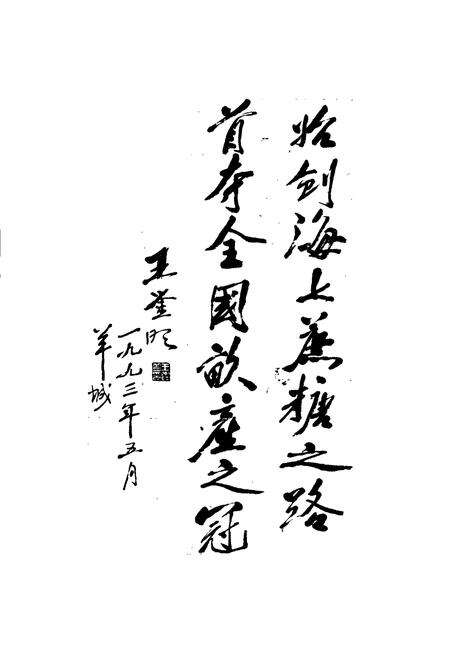 始创海上蔗糖之路
首夺全國畝產之冠
王
一九九三年五月
羊城